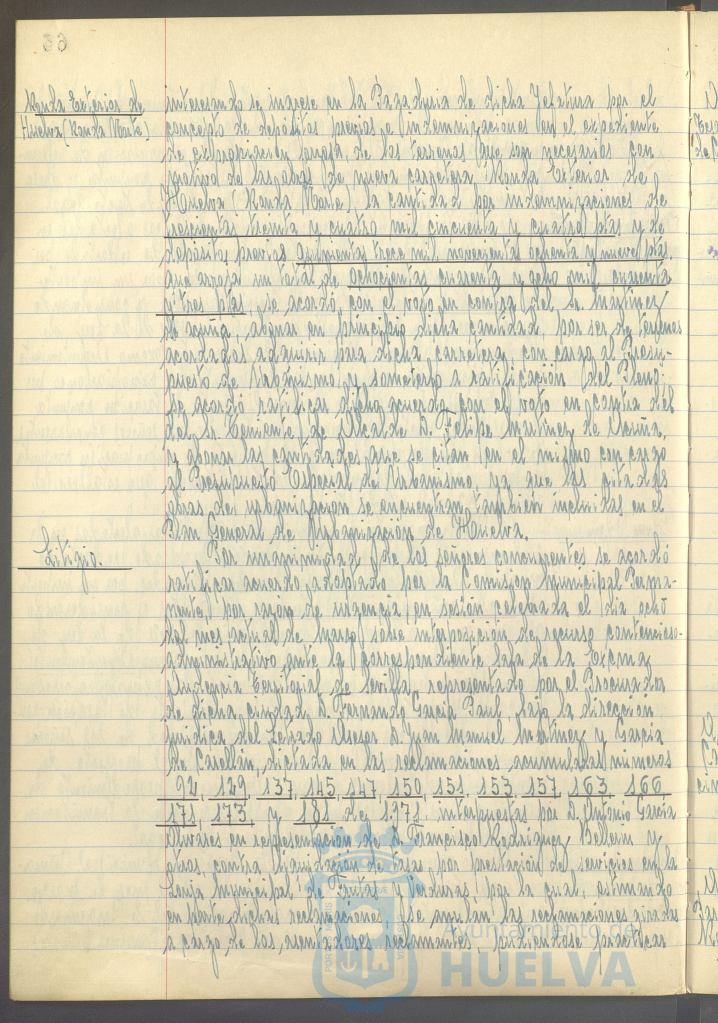 63
Ronda Exterior de
Huelva (Ronda Norte)
interesando se ingrese en la Pagaduria de dicha Jefatura por el
concepto de depósitos previos e indemnizaciones en el expediente
de expropiacion forzosa, de los terrenos que son necesarios con
motivo de las obras de nueva carretera, Ronda Exterior de
Huelva (Ronda Norte) la cantidad por indemnizaciones de
trescientas treinta y cuatro mil cincuenta y cuatro ptas y de
depósitos previos quinientas trece mil novecientas ochenta y nueve ptas.
que arroja un total de ochocientas cuarenta y ocho mil cuarenta
y tres ptas se acordó, con el voto en contra del Sr. Martinez
de Acuña, abonar en principio dicha cantidad, por ser de terrenos
acordados adquirir para dicha carretera, con cargo al Presu-
puesto de Urbanismo, y someterlo a ratificación del Pleno
Se acordó ratificar dicho acuerdo con el voto en contra del
del Sr. Teniente de Alcalde D. Felipe Martinez de Acuña,
y abonar las cantidades que se citan en el mismo con cargo
al Presupuesto Especial de Urbanismo, ya que las citadas
obras de urbanizacion se encuentran tambien incluidas en el
Plan General de Urbanizacion de Huelva.
Litigio.
Por unanimidad de los señores concurrentes se acordó
ratificar acuerdo adoptado por la Comision Municipal Perma-
nente, por razón de urgencia, en sesión celebrada el dia ocho
del mes actual de marzo, sobre interposición de recurso contencioso-
administrativo ante la correspondiente Sala de la Excma
Audiencia Territorial de Sevilla, representado por el Procurador
de dicha ciudad D. Fernando Garcia Paul, bajo la dirección
juridica del Letrado Asesor D. Juan Manuel Martinez y Garcia
de dictada en las reclamaciones acumuladas números
92, 129, 137, 145, 147, 150, 151, 153, 157, 163, 166
171, 173 y 181 de 1.971, interpuestas por D. Antonio Garcia
Olivares en representacion de D. Francisco Rodriguez Bellerin y
otros, contra liquidacion de tasas por prestación de servicios en la
Lonja Municipal de Frutas y Verduras, por la cual, estimando
en parte dichas reclamaciones, se anulan las reclamaciones giradas
a cargo de los asentadores reclamantes, pudiendose practicar
Ayuntamiento de
HUELVA